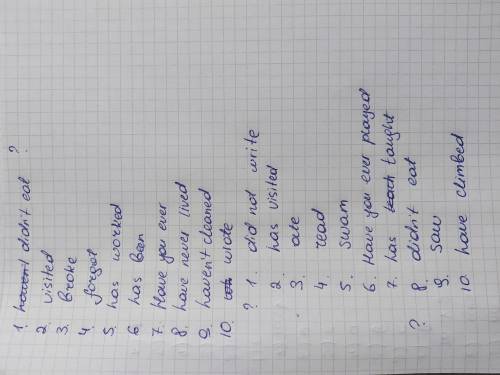 1. haven't didn't eat ?
2. visited
3. broke
4. forgot
5. has worked
6. has been
7. Have you ever
8. have never lived
9. haven't cleaned
10.
? 1. did not write
2. has visited
3. ate
4. read
5. swam
6. Have you ever played
7. has teach taught
? 8. didn't eat
9. saw
10. have climbed